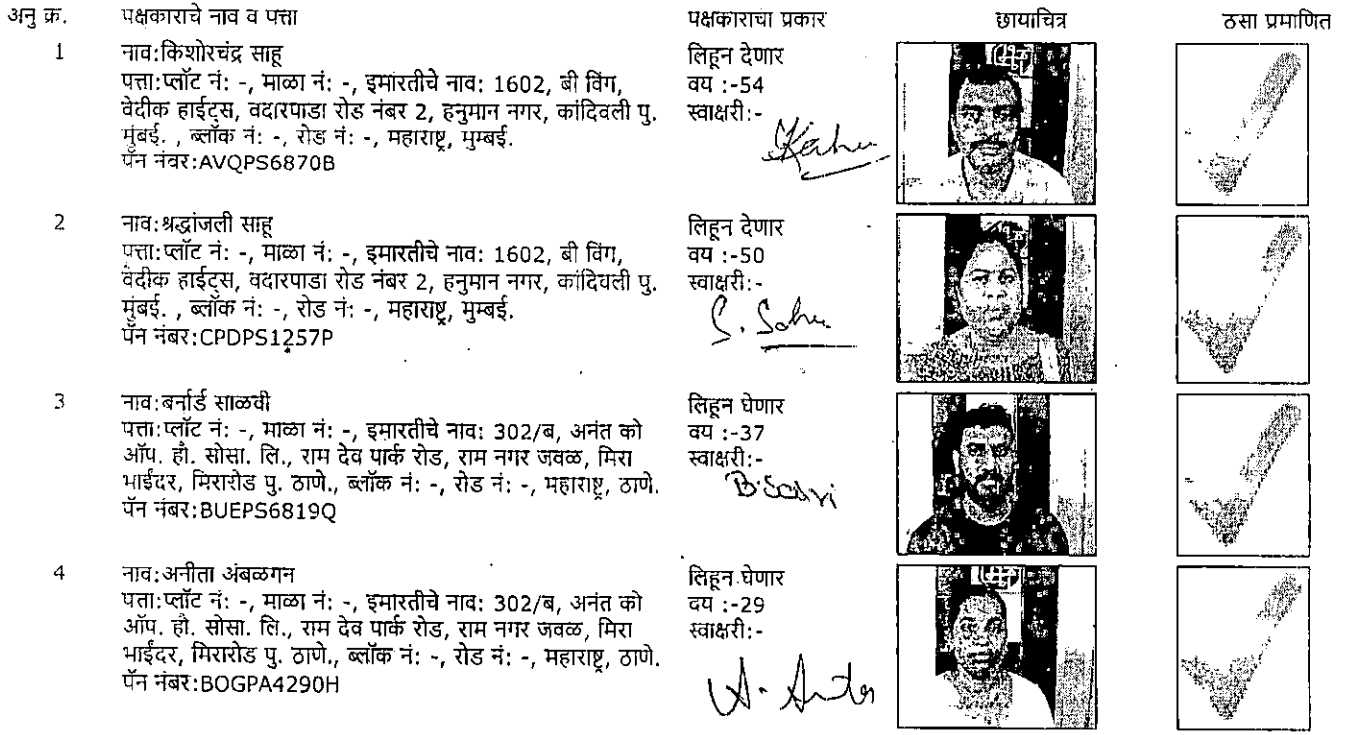 अनु क्र. पक्षकाराचे नाव व पत्ता पक्षकाराचा प्रकार छायाचित्र ठसा प्रमाणित
1 नाव:किशोरचंद्र साहू
पत्ता:प्लॉट नं: -, माळा नं: -, इमारतीचे नाव: 1602, बी विंग,
वेदीक हाईट्स, वदारपाडा रोड नंबर 2, हनुमान नगर, कांदिवली पु.
मुंबई. , ब्लॉक नं: -, रोड नं: -, महाराष्ट्र, मुम्बई.
पॅन नंबर:AVQPS6870B
लिहून देणार
वय :-54
स्वाक्षरी:-
2 नाव:श्रद्धांजली साहू
पत्ता:प्लॉट नं: -, माळा नं: -, इमारतीचे नाव: 1602, बी विंग,
वेदीक हाईट्स, वदारपाडा रोड नंबर 2, हनुमान नगर, कांदिवली पु.
मुंबई. , ब्लॉक नं: -, रोड नं: -, महाराष्ट्र, मुम्बई.
पॅन नंबर:CPDPS1257P
लिहून देणार
वय :-50
स्वाक्षरी:-
S. Sahu
3 नाव:बर्नार्ड साळवी
पत्ता:प्लॉट नं: -, माळा नं: -, इमारतीचे नाव: 302/ब, अनंत को
ऑप. हौ. सोसा. लि., राम देव पार्क रोड, राम नगर जवळ, मिरा
भाईंदर, मिरारोड पु. ठाणे., ब्लॉक नं: -, रोड नं: -, महाराष्ट्र, ठाणे.
पॅन नंबर:BUEPS6819Q
लिहून घेणार
वय :-37
स्वाक्षरी:-
4 नाव:अनीता अंबळगन
पत्ता:प्लॉट नं: -, माळा नं: -, इमारतीचे नाव: 302/ब, अनंत को
ऑप. हौ. सोसा. लि., राम देव पार्क रोड, राम नगर जवळ, मिरा
भाईंदर, मिरारोड पु. ठाणे., ब्लॉक नं: -, रोड नं: -, महाराष्ट्र, ठाणे.
पॅन नंबर:BOGPA4290H
लिहून घेणार
वय :-29
स्वाक्षरी:-